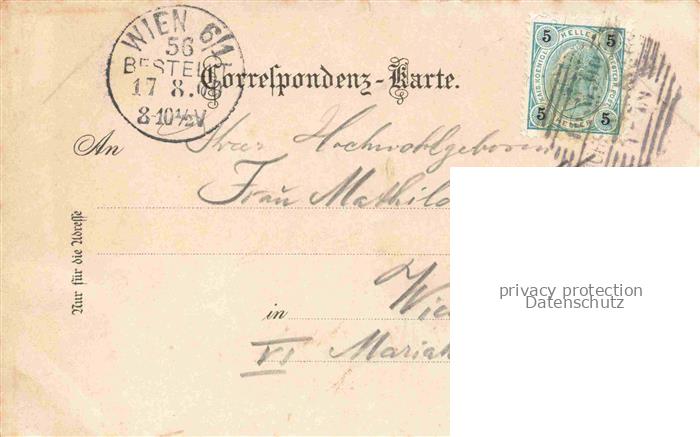 WIEN 6/1
56
BESTELLT
17 8 0
8-10½V
Correspondenz-Karte.
5 HELLER 5
KAIS. KOENIGL.
5 HELLER 5
An Ihrer Hochwohlgeboren
Frau Mathil
Nur für die Adresse
privacy protection
Datenschutz
in Wie
VI Mariah